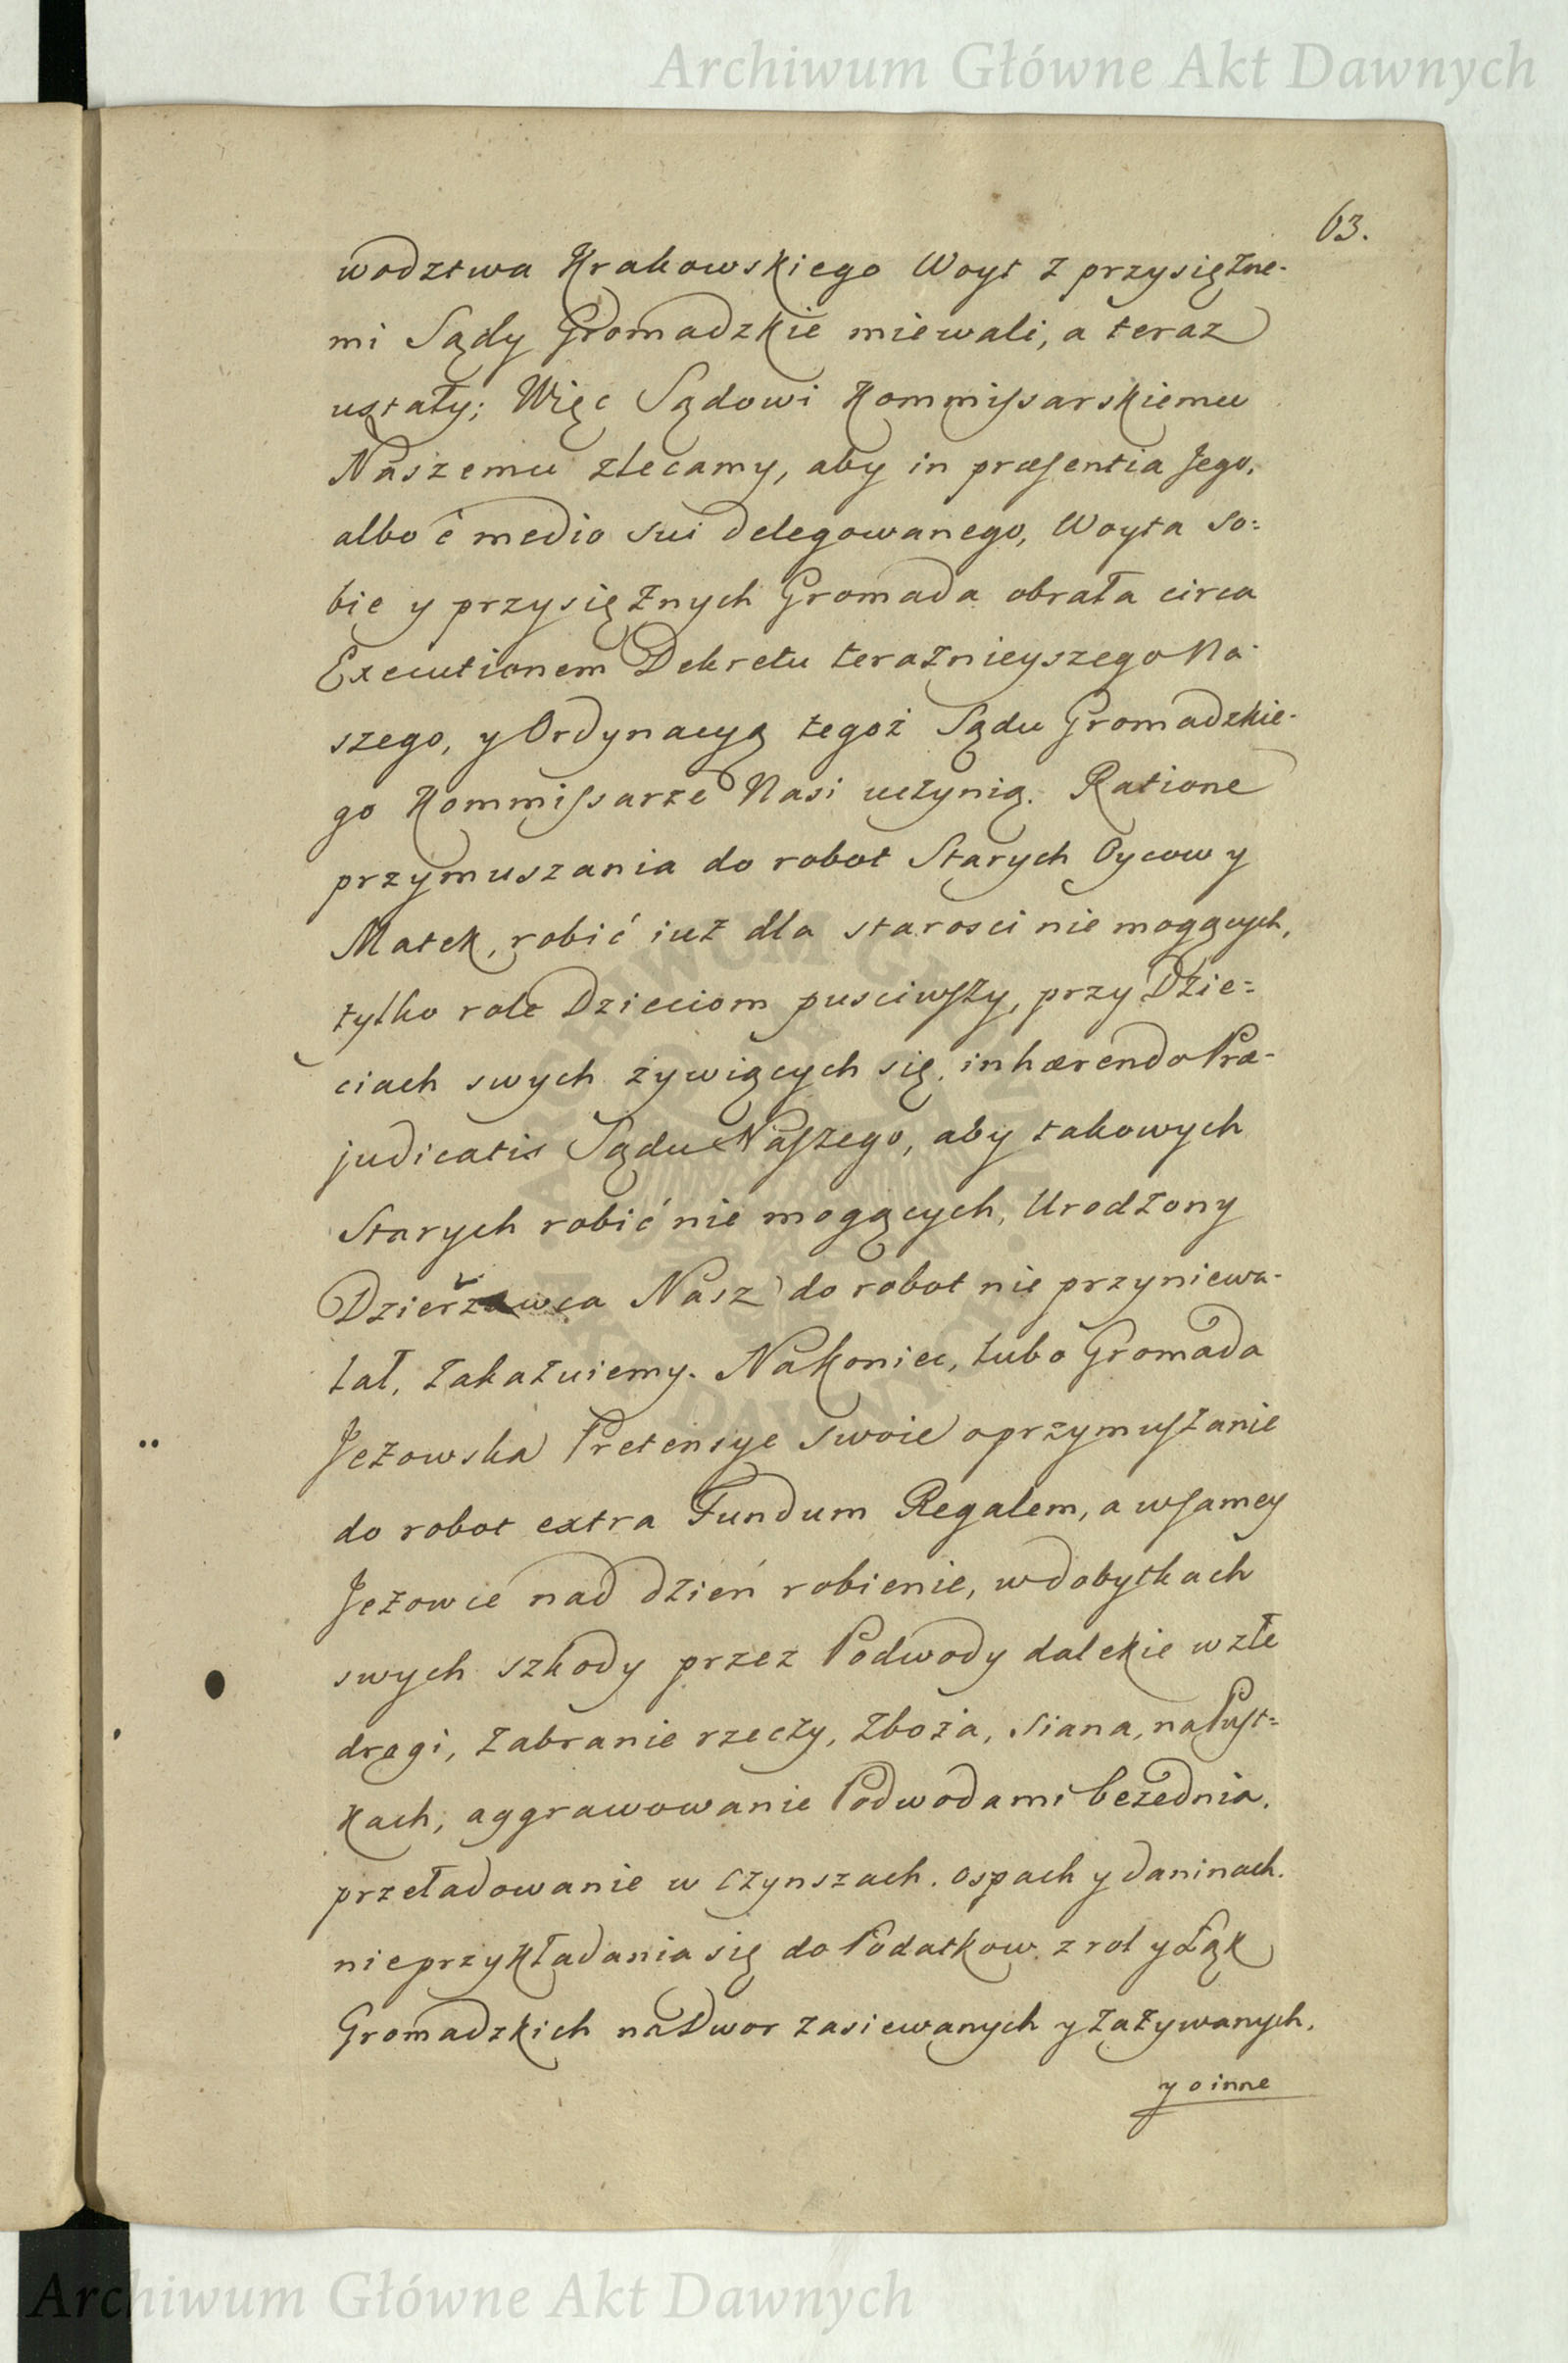 Archiwum Główne Akt Dawnych
63.
wodztwa Krakowskiego Woyt z przysiężne-
mi Sądy Gromadzkie miewali, a teraz
ustały; Więc Sądowi Kommissarskiemu
Naszemu zlecamy, aby in præsentia Jego,
albo è medio sui delegowanego, Woyta so=
bie y przysiężnych Gromada obrała circa
Executionem Dekretu teraźnieyszego Na-
szego, y Ordynacyą tegoż Sądu Gromadzkie-
go Kommissarze Nasi uczynią. Ratione
przymuszania do robot Starych Oycow y
Matek, robić iuż dla starosci nie mogących,
tylko role Dzieciom pusciwszy, przy Dzie=
ciach swych żywiących się, inhærendo Præ-
judicatis Sądu Naszego, aby takowych
Starych robić nie mogących, Urodzony
Dzierżawca Nasz do robot nie przyniewa-
lał, zakazuiemy. Nakoniec, lubo Gromada
Jeżowska Pretensye swoie o przymuszanie
do robot extra Fundum Regalem, a w samey
Jeżowce nad dzień robienie, w dobytkach
swych szkody przez Podwody dalekie w złe
drogi, zabranie rzeczy, zboża, siana, na Pust=
kach, aggrawowanie Podwodami bezednia,
przeładowanie w czynszach, ospach y daninach,
nieprzykładania się do Podatkow z rol y Łąk
Gromadzkich na Dwor zasiewanych y zażywanych,
y o inne
ARCHIWUM GŁÓWNE AKT DAWNYCH
Archiwum Główne Akt Dawnych